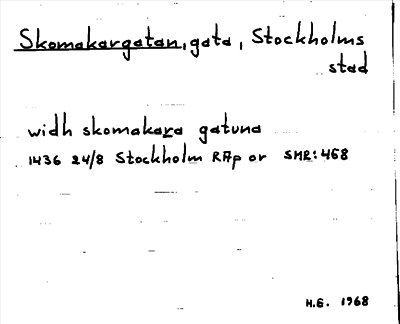 Skomakargatan, gata, Stockholms
stad
widh skomakara gatuna
1436 24/8 Stockholm RAp or SMR:468
H.G. 1968